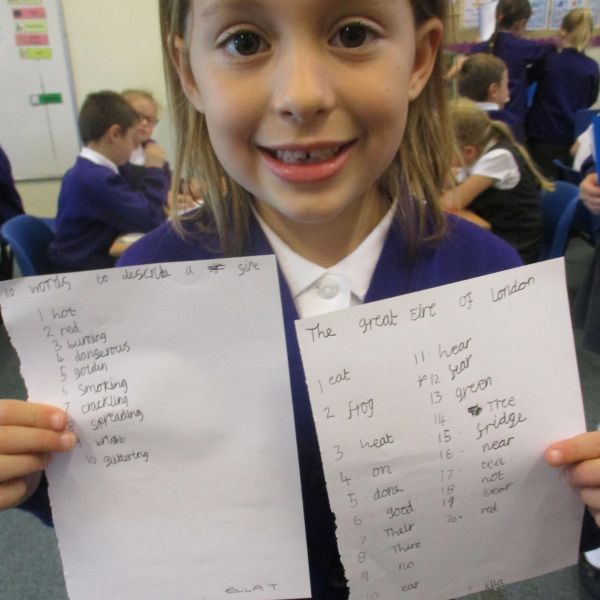 10 words to describe a fire
1 hot
2 red
3 burning
4 dangerous
5 goldin
6 smoking
7 crackling
8 spreading
9 bright
10 glittering
ELLA T
The great Fire of London
1 eat
2 frog
3 heat
4 on
5 done
6 good
7 Their
8 There
9 no
10 ear
11. hear
12 fear
13. green
14. Tree
15. fridge
16. near
17. tea
18. not
19
20. red
Ella